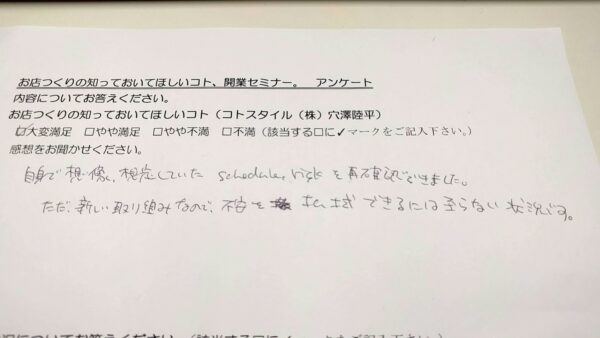 お店つくりの知っておいてほしいコト、開業セミナー。 アンケート
内容についてお答えください。
お店つくりの知っておいてほしいコト（コトスタイル（株）穴澤陸平）
☑大変満足 □やや満足 □やや不満 □不満（該当する□に✓マークをご記入下さい。）
感想をお聞かせください。
自身で想像、想定していた schedule, risk を再確認できました。
ただ、新しい取り組みなので、不安を 払拭できるには至らない状況です。
況についてお答えください（該当する□に✓マークをご記入下さい。）